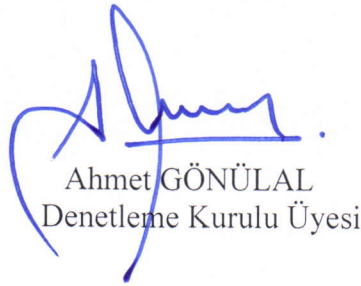 Ahmet GÖNÜLAL
Denetleme Kurulu Üyesi